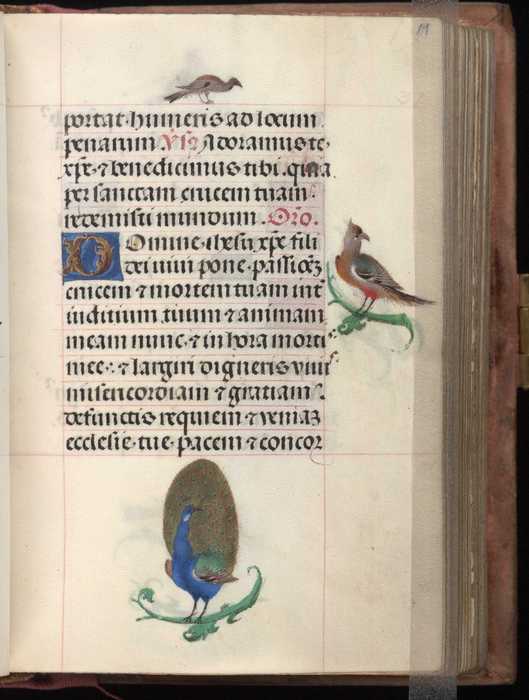 portat humeris ad locum
penarum Vs Adoramus te
xpe· ⁊ benedicimus tibi. quia
per sanctam crucem tuam
redemisti mundum. Oro.
Domine ihesu xpe fili
dei vivi pone· passioȝ
crucem ⁊ mortem tuam int
iuditium tuum ⁊ animam
meam nunc· ⁊ in hora morti
mee·: ⁊ largiri digneris viui
misericordiam ⁊ gratiam·
defunctis requiem ⁊ veniaȝ
ecclesie· tue· pacem ⁊ concor